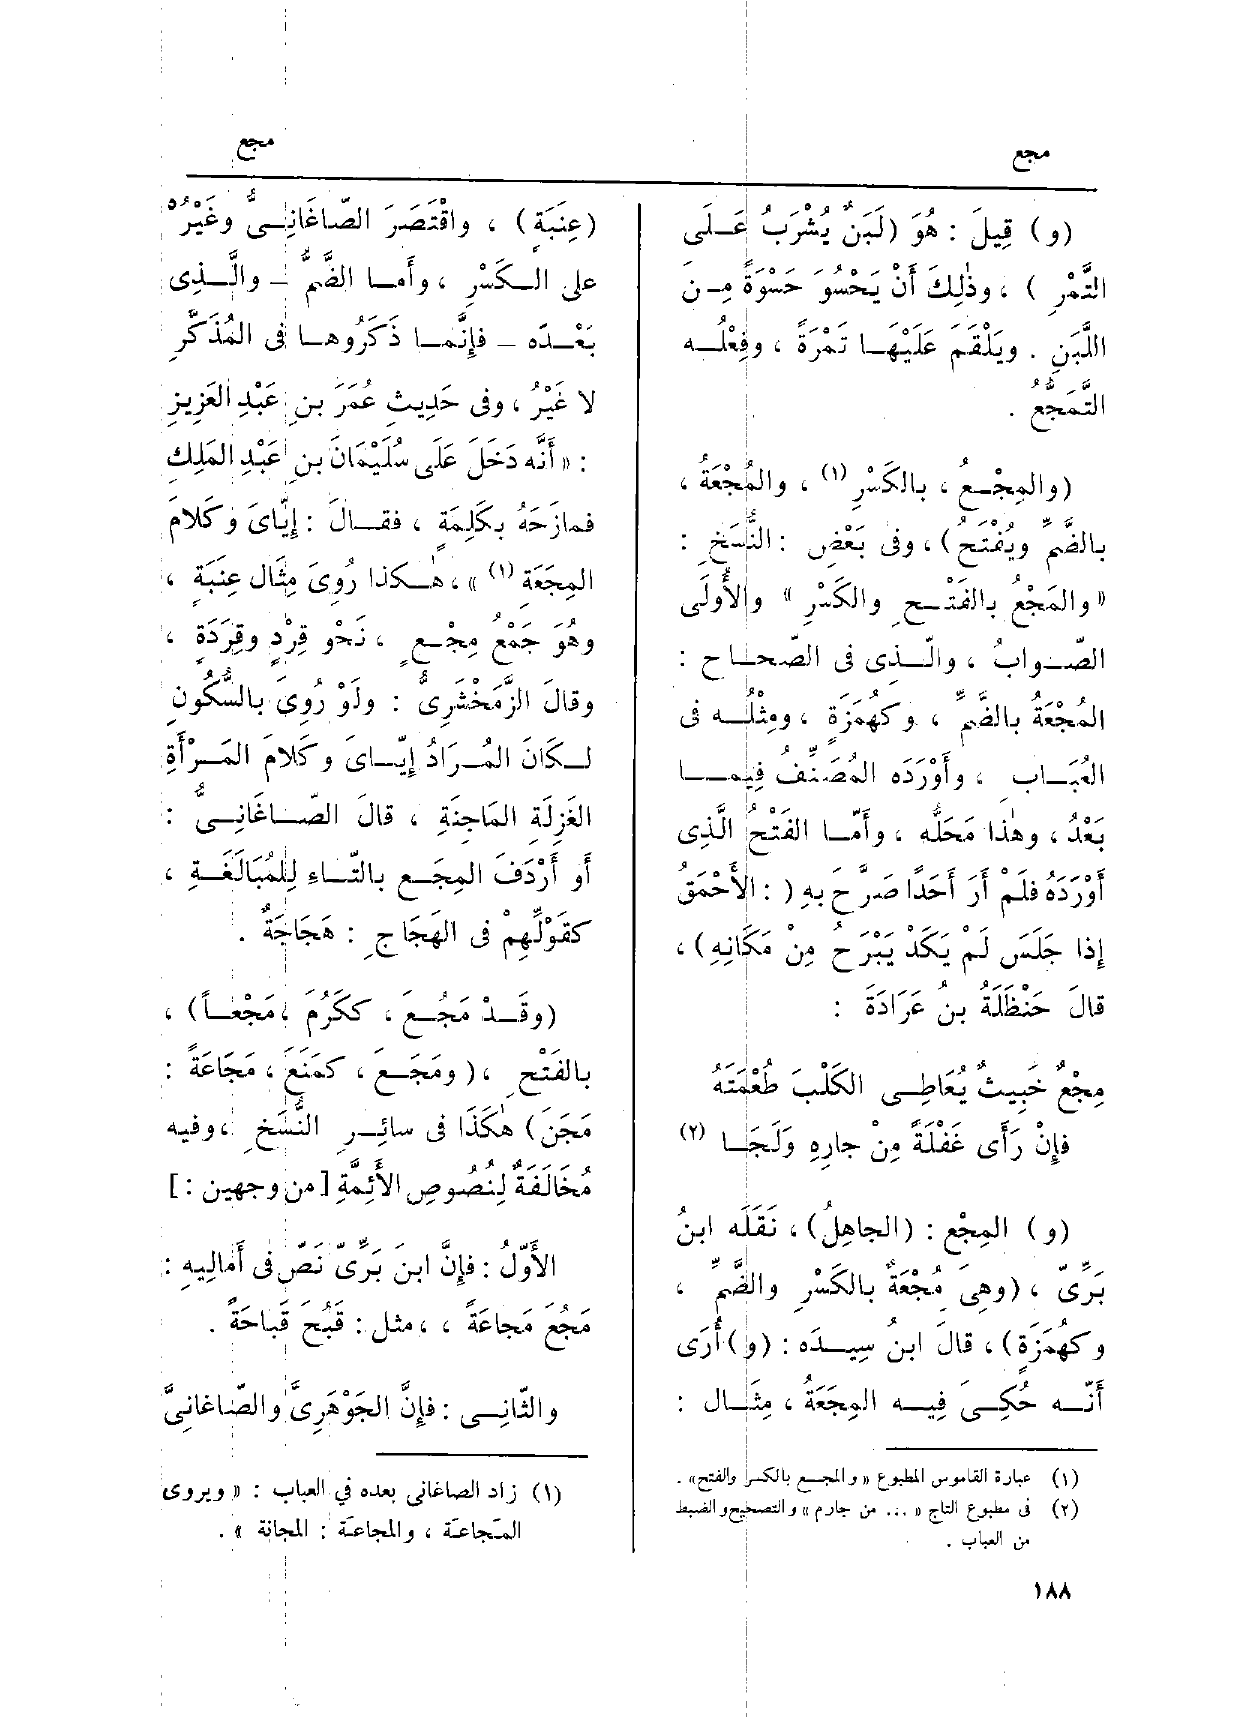 مجع
مجع
(و) قِيلَ : هُوَ (لَبَنٌ يُشْرَبُ عَلَى
التَّمْرِ ) ، وذٰلِكَ أَنْ يَحْسُوَ حَسْوَةً مِن
اللَّبَنِ . ويَلْقَمَ عَلَيْهَا تَمْرَةً ، وفِعْلُه
التَّمَجُّعُ .
(والمِجْعُ ، بالكَسْرِ (١) ، والمُجْعَةُ ،
بالضَّمِّ ويُفْتَح) ، وفى بَعْضِ : النُّسَخِ :
« والمَجْعُ بالفَتْحِ والكَسْرِ » والأُولَى
الصّوابُ ، والّذى فى الصّحاح :
المُجْعَةُ بالضَّمِّ ، وكهُمَزَةٍ ، ومِثْلُه فى
العُبَابِ ، وأَوْرَدَه المُصَنِّفُ فِيمَا
بَعْدُ ، وهٰذا مَحَلُّه ، وأَمَّا الفَتْحُ الَّذِى
أَوْرَدَهُ فلَمْ أَرَ أَحَدًا صَرَّحَ بهِ ( : الأَحْمَقُ
إذا جَلَسَ لَمْ يَكَدْ يَبْرَحُ مِنْ مَكَانِهِ) ،
قالَ حَنْظَلَةُ بنُ عَرَادَةَ :
مِجْعٌ خَبِيثٌ يُعَاطِى الكَلْبَ طُعْمَتَهُ
فإِنْ رَأَى غَفْلَةً مِنْ جارِهِ وَلَجَا (٢)
(و) المِجْع : (الجاهِلُ) ، نَقَلَه ابنُ
بَرِّىّ ، (وهِىَ مُجْعَةٌ بالكَسْرِ والضَّمِّ ،
وكهُمَزَةٍ) ، قالَ ابنُ سِيدَه : (و) أُرَى
أَنَّه حُكِىَ فِيه المِجَعَةُ ، مِثَال :
(١) عبارة القاموس المطبوع « والمجع بالكسر والفتح» .
(٢) فى مطبوع التاج « ... من جارم » والتصحيح والضبط
من العباب .
١٨٨
(عِنِبَةٍ) ، واقْتَصَرَ الصّاغَانِىُّ وغَيْرُهُ
على الكَسْرِ ، وأَما الضَّمُّ – والَّذِى
بَعْدَه – فإنَّما ذَكَرُوها فى المُذَكَّرِ
لا غَيْرُ ، وفى حَدِيثِ عُمَرَ بنِ عَبْدِ العَزِيزِ
: « أَنَّه دَخَلَ عَلَى سُلَيْمَانَ بنِ عَبْدِ المَلِكِ
فمازَحَهُ بكَلِمَةٍ ، فقالَ : إيَّاىَ وكَلامَ
المِجَعَة (١) » ، هٰكذا رُوِىَ مِثَال عِنَبَةٍ ،
وهُوَ جَمْعُ مِجْعٍ ، نَحْو قِرْدٍ وقِرَدَةٍ ،
وقالَ الزَّمَخْشَرِىُّ : ولَوْ رُوِىَ بالسُّكُونِ
لكَانَ المُرَادُ إيّاىَ وكَلامَ المَرْأَةِ
الغَزِلَةِ المَاجِنَةِ ، قالَ الصّاغَانِىُّ :
أو أَرْدَفَ المِجَع بالتّاءِ لِلْمُبَالَغَةِ ،
كقَوْلِهِمْ فى الهَجَاجِ : هَجَاجَةٌ .
(وقَدْ مَجُعَ ، ككَرُمَ ، مَجْعاً) ،
بالفَتْحِ ، ( ومَجَعَ ، كمَنَعَ ، مَجَاعَةً :
مَجَنَ) هٰكَذَا فى سائِرِ النُّسَخِ ، وفيه
مُخَالَفَةٌ لِنُصُوصِ الأَئِمَّةِ [من وجهين : ]
الأَوَّلُ : فإِنَّ ابنَ بَرِّىّ نَصّ فى أَمَالِيهِ :
مَجُعَ مَجاعَةً ، ، مثل : قَبُحَ قَباحَةً .
والثّانِى : فإِنَّ الجَوْهَرِىَّ والصّاغانِىَّ
(١) زاد الصاغانى بعده في العباب : « ويروى
المَجاعة ، والمجاعة : المجانة » .